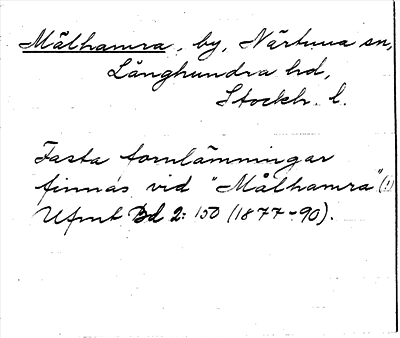 Målhamra, by, Närtuna sn,
Långhundra hd,
Stockh. l.
Fasta fornlämningar
finnas vid "Målhamra" (!)
Ufmt Bd 2: 150 (1877-90).